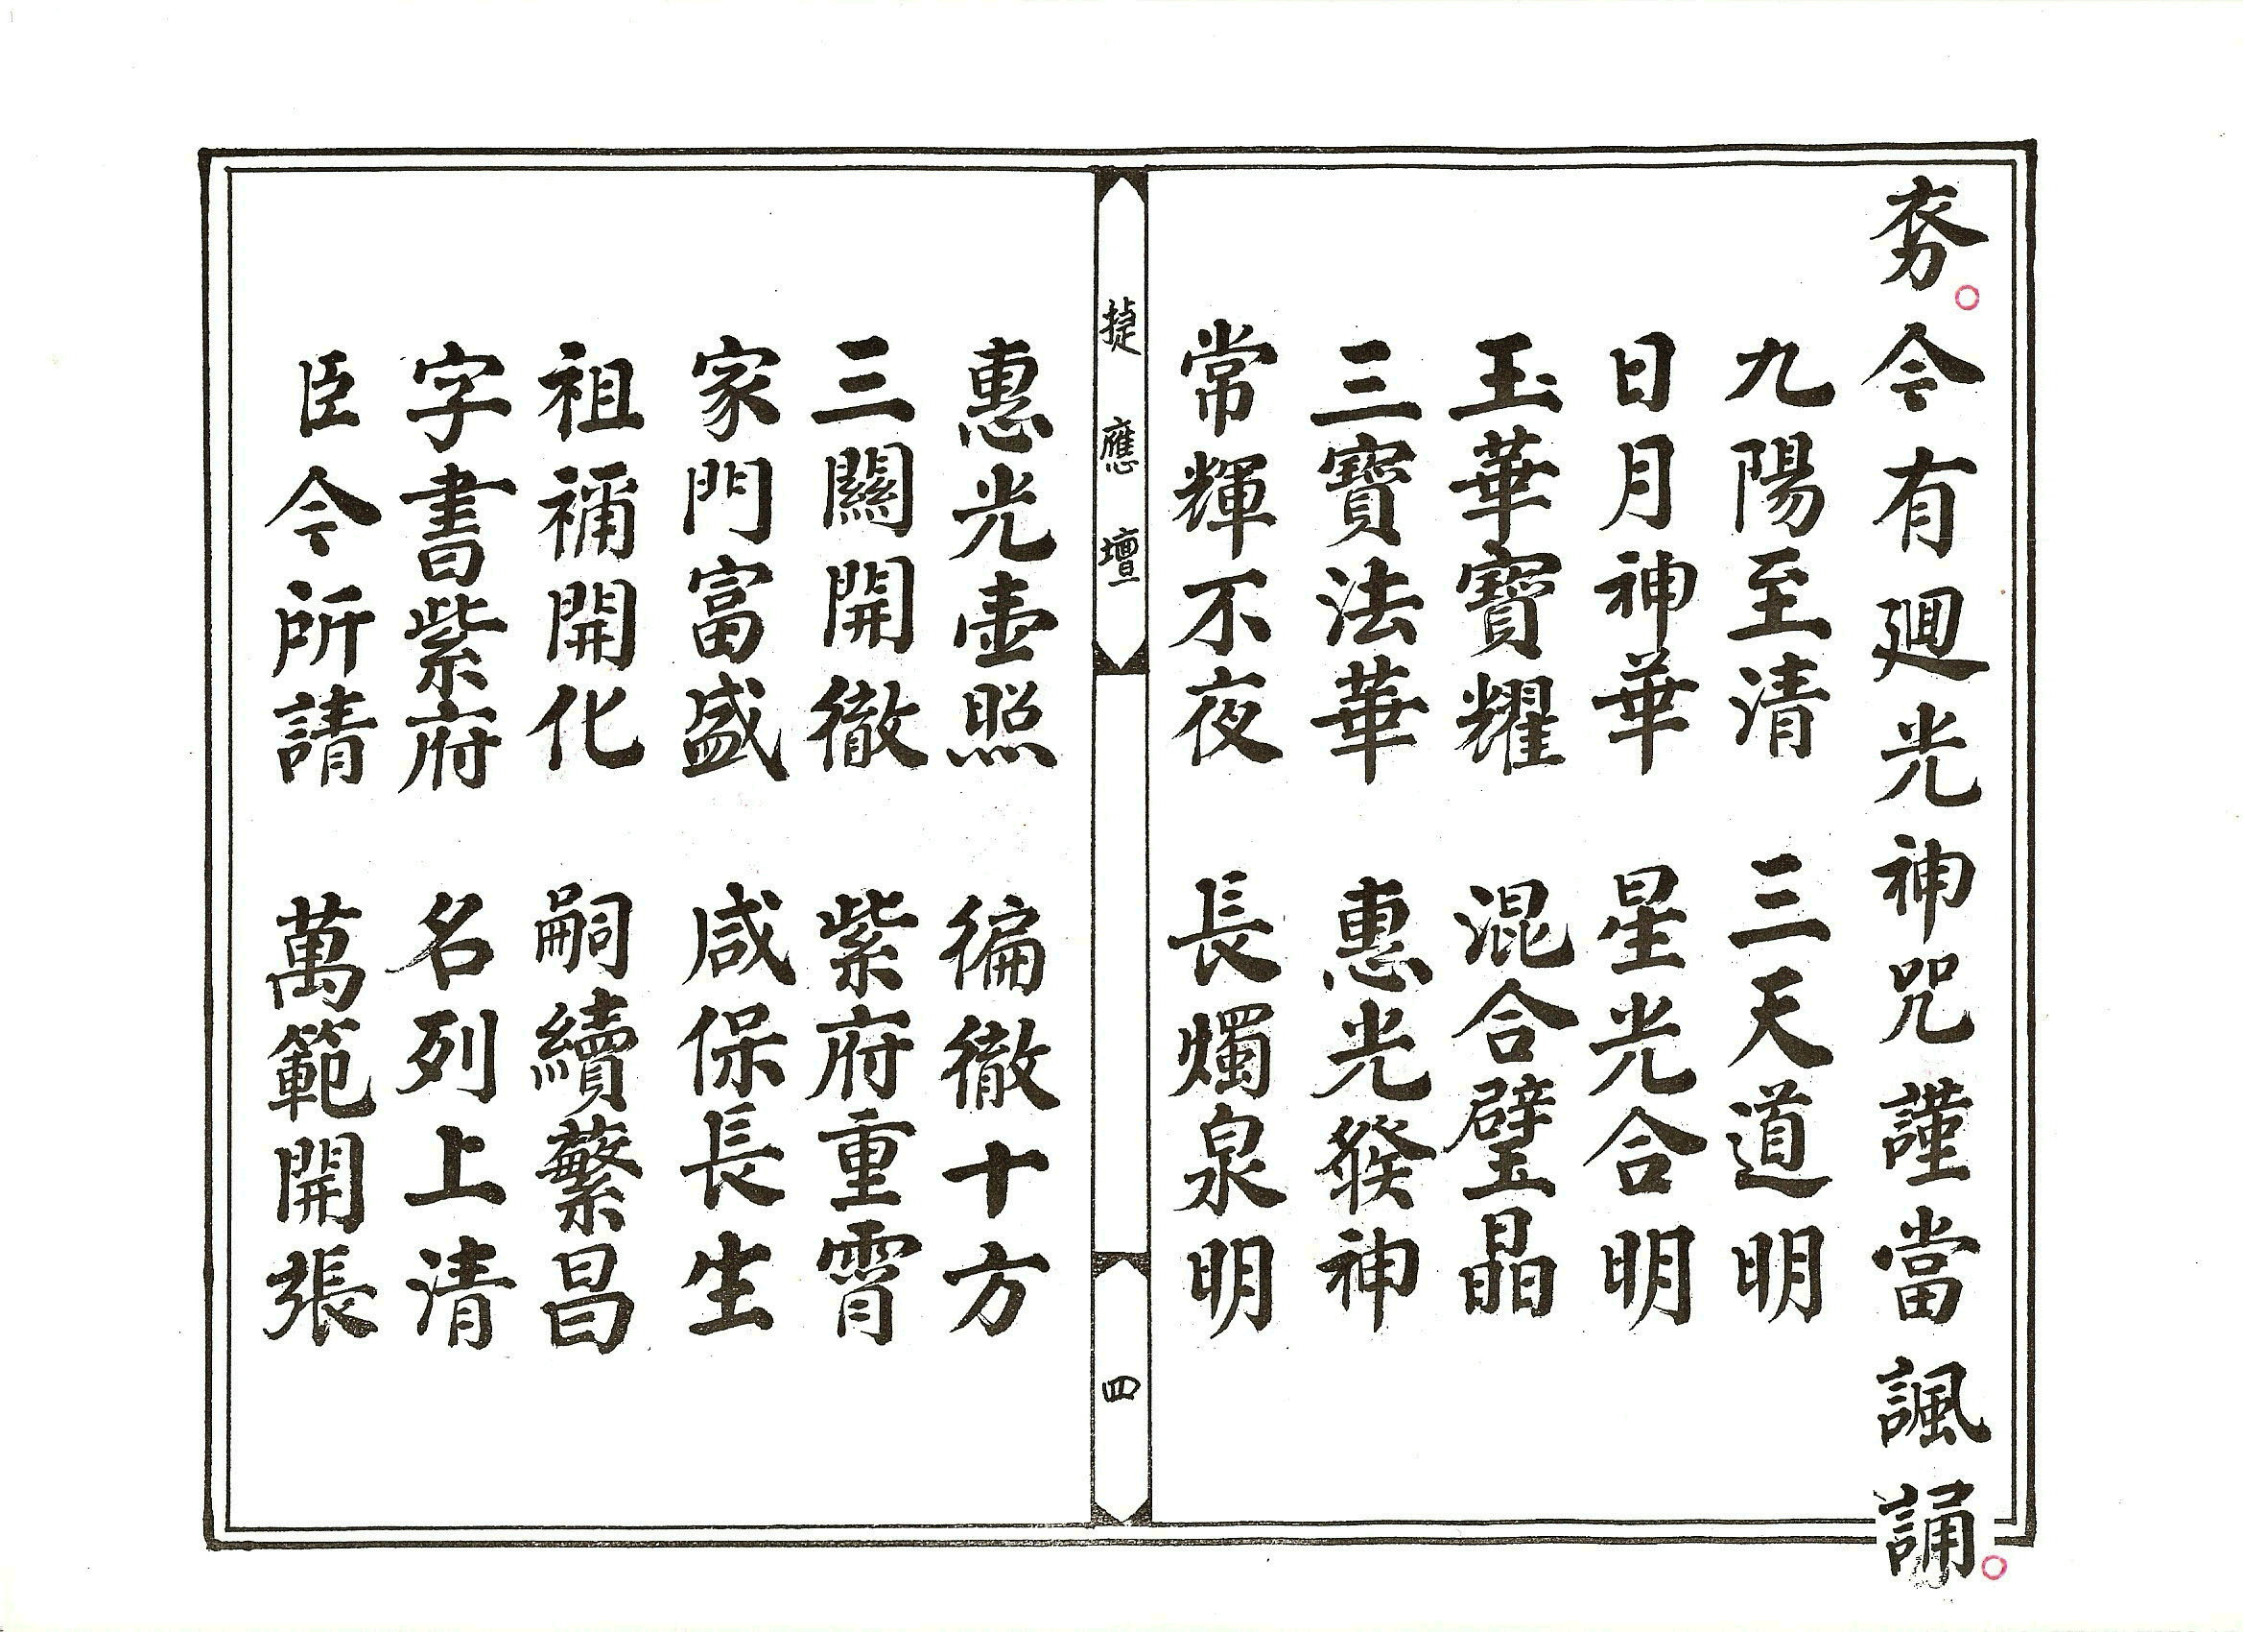 今有廻光神咒謹當諷誦。
九陽至清 三天道明
日月神華 星光合明
玉華寶耀 混合璧晶
三寶法華 惠光發神
常輝不夜 長燭泉明
捷應壇 四
惠光壷照 徧徹十方
三關開徹 紫府重霄
家門富盛 咸保長生
祖禰開化 嗣續繁昌
字書紫府 名列上清
臣今所請 萬範開張